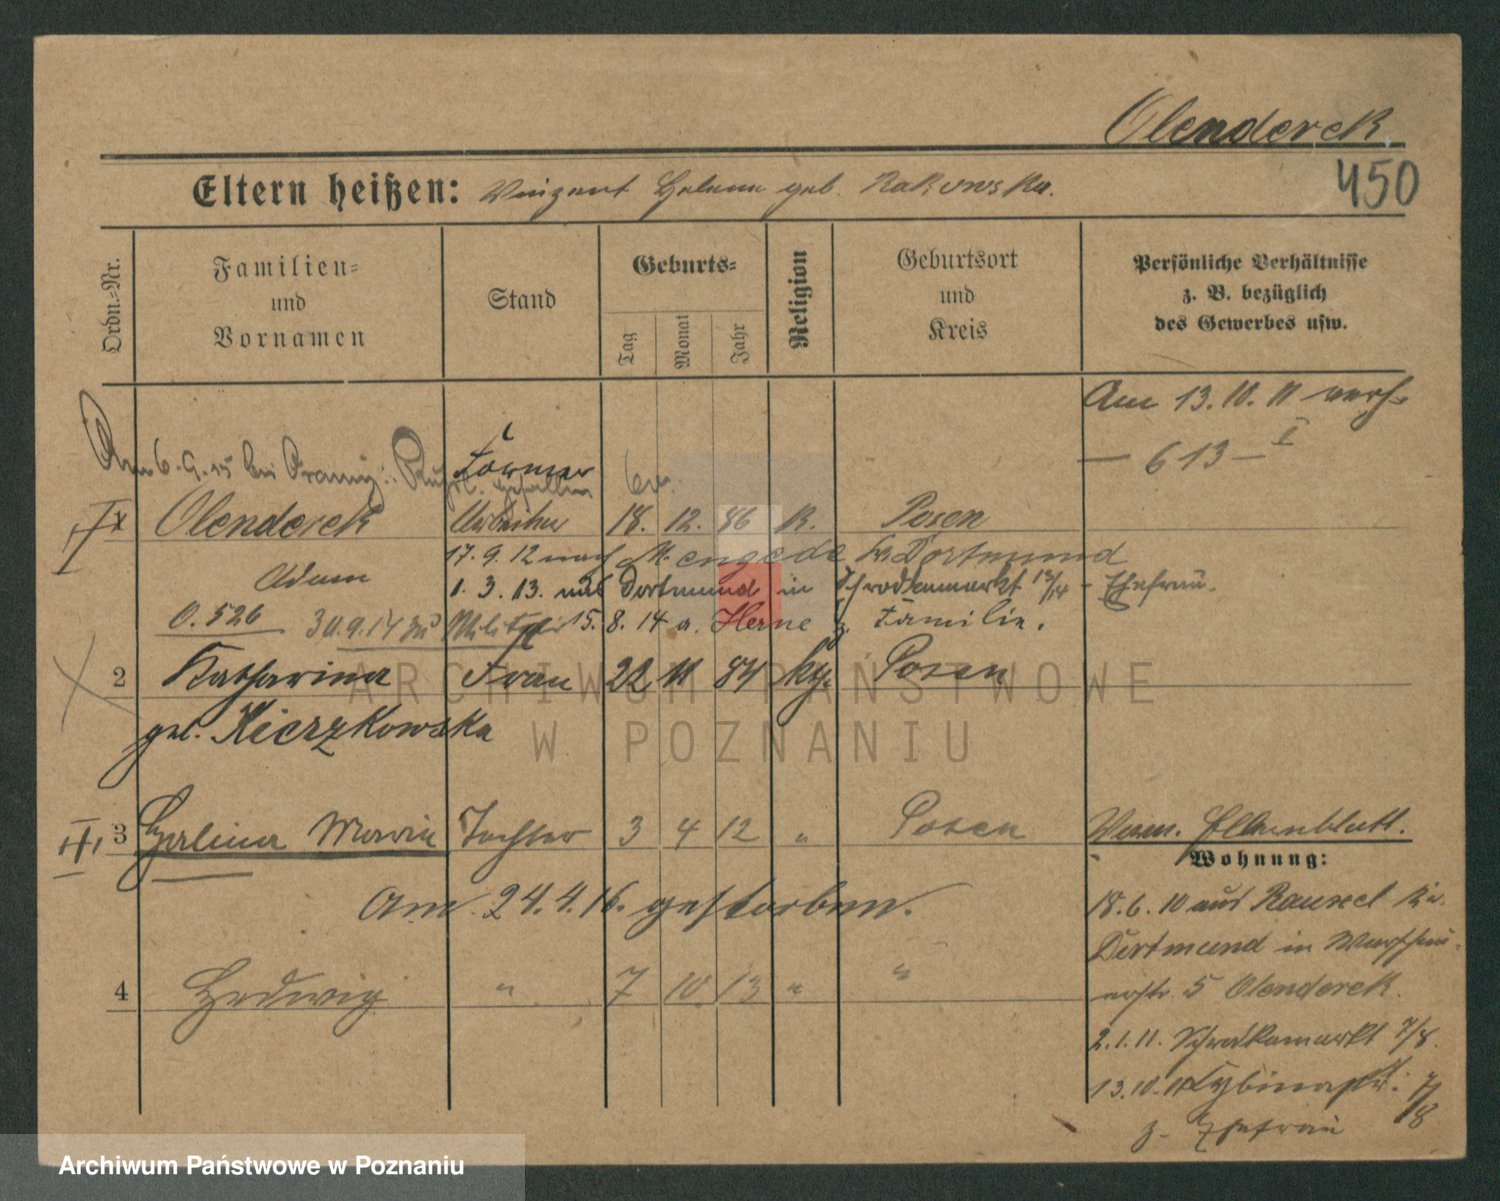 Olenderek
450
Eltern heißen: Vinzent Helena geb. Rakowska.
Ordn.-Nr.
Familien- und Vornamen
Stand
Geburts-
Tag
Monat
Jahr
Religion
Geburtsort und Kreis
Persönliche Verhältnisse z. B. bezüglich des Gewerbes usw.
Am 13.10.11 verh.
— 613 — I
Am 6.9.15 bei gefallen
Former
ev.
I x Olenderek Arbeiter 18. 12. 86 K. Posen
17.9.12 nach Mengede Kr. Dortmund
Adam
1.3.13. aus Dortmund in Schrodkamarkt 13/14 - Ehefrau.
0.526 30.9.14 zu Militär 15.8.14 a. Herne z. Familie.
2 Katharina Frau 22 11 84 kg. Posen
geb. Kierzkowska
III 3 Halina Maria Tochter 3 4 12 " Posen
Am 24.4.16. gestorben.
4 Hedwig " 7 10 13 " "
Wohnung:
18.6.10 aus Rauxel Kr.
Dortmund in
5 Olenderek.
2.1.11. Schrodkamarkt 7/8.
13.10.11 Cybinastr. 7/8
z. Ehefrau
ARCHIWUM PAŃSTWOWE
W POZNANIU
Archiwum Państwowe w Poznaniu